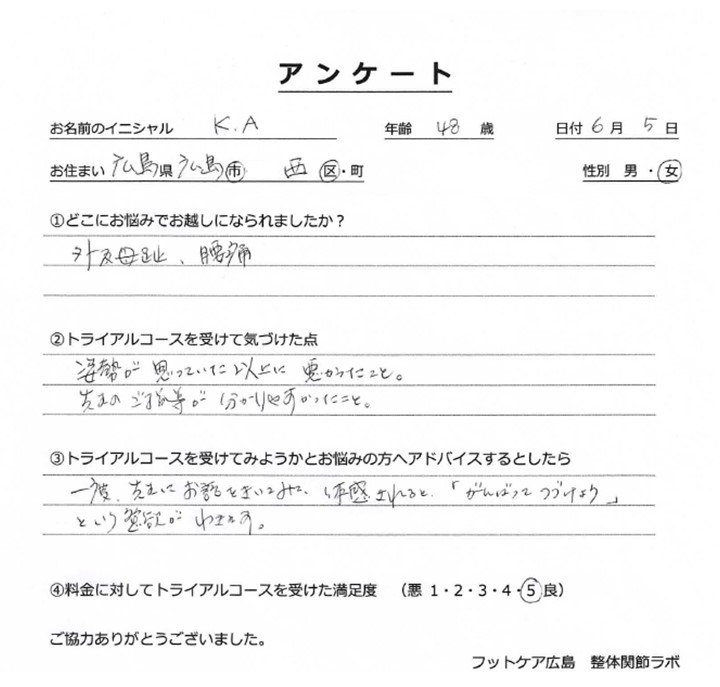 アンケート
お名前のイニシャル K.A 年齢 48 歳 日付 6 月 5 日
お住まい 広島県 広島市 西区・町 性別 男・女
①どこにお悩みでお越しになられましたか？
外反母趾、腰痛
②トライアルコースを受けて気づけた点
姿勢が思っていた以上に悪かったこと。
先生のご指導が分かりやすかったこと。
③トライアルコースを受けてみようかとお悩みの方へアドバイスするとしたら
一度、先生にお話をきいてみて、体感されると、「がんばってつづけよう」
という意欲がわきます。
④料金に対してトライアルコースを受けた満足度 （悪 1・2・3・4・5 良）
ご協力ありがとうございました。
フットケア広島 整体関節ラボ